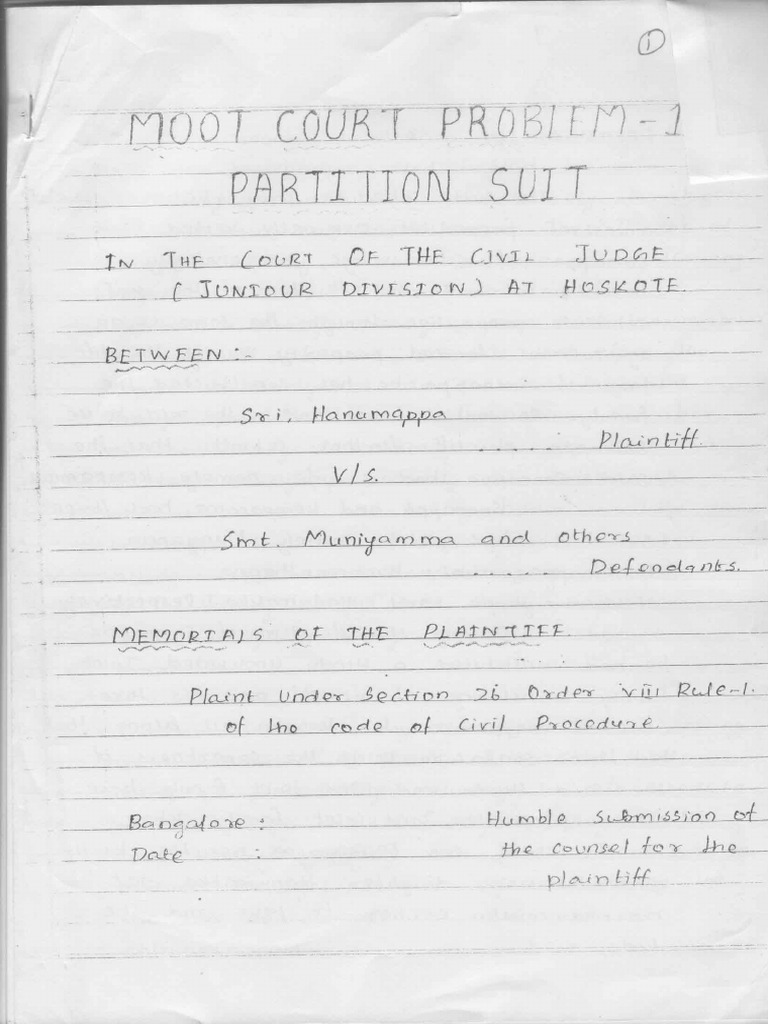 1
MOOT COURT PROBLEM-1
PARTITION SUIT
IN THE COURT OF THE CIVIL JUDGE
(JUNIOUR DIVISION) AT HOSKOTE.
BETWEEN :-
Sri. Hanumappa
..... Plaintiff.
V/s.
Smt. Muniyamma and others
...... Defendants.
MEMORIALS OF THE PLAINTIFF.
Plaint under section 26 Order VIII Rule-1.
of the code of Civil Procedure.
Bangalore : Humble submission of
Date : the counsel for the
plaintiff